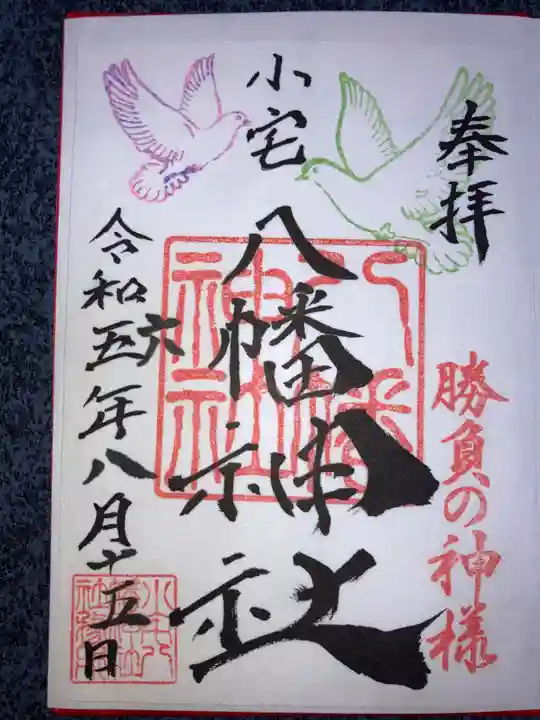 奉拝
勝負の神様
小宅
八幡神社
八幡神社
令和五六年八月十五日